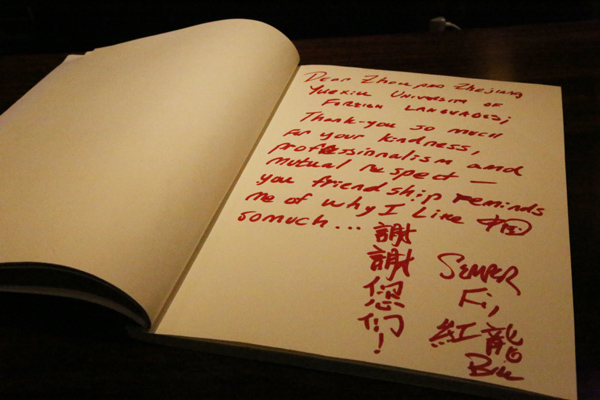 Dear Zhou and Zhejiang
Yuexiu University of
Foreign Languages;
Thank-you so much
for your kindness,
professionalism and
mutual respect —
you friendship reminds
me of why I like
so much...
謝謝您们！
Semper
Fi,
紅龍